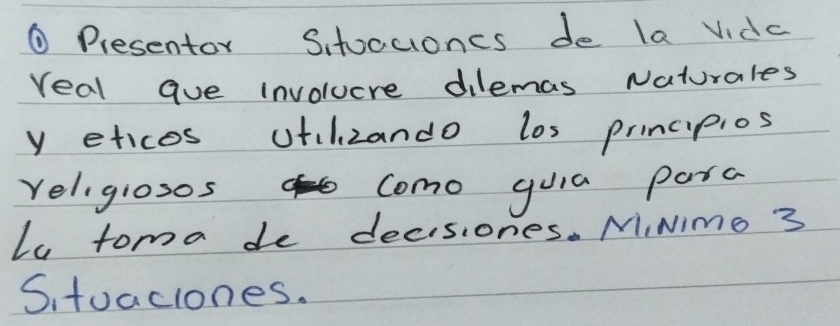 ① Presentar Situaciones de la vida
real que involucre dilemas Naturales
y eticos utilizando los principios
religiosos como guia para
La toma de decisiones. MiNimo 3
Situaciones.